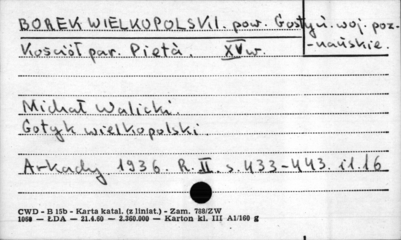 BOREK WIELKOPOLSKI. pow. Gostyń. woj. poz-
-nańskie.
Kościół par. Pietà. XV w.
Michał Walicki.
Gotyk wielkopolski.
Arkady 1936. R. II. s. 433-443. il. 16
CWD - B 15b - Karta katal. (z liniat.) - Zam. 788/ZW
1089 — ŁDA — 21.4.60 — 2.360.000 — Karton kl. III A1/160 g